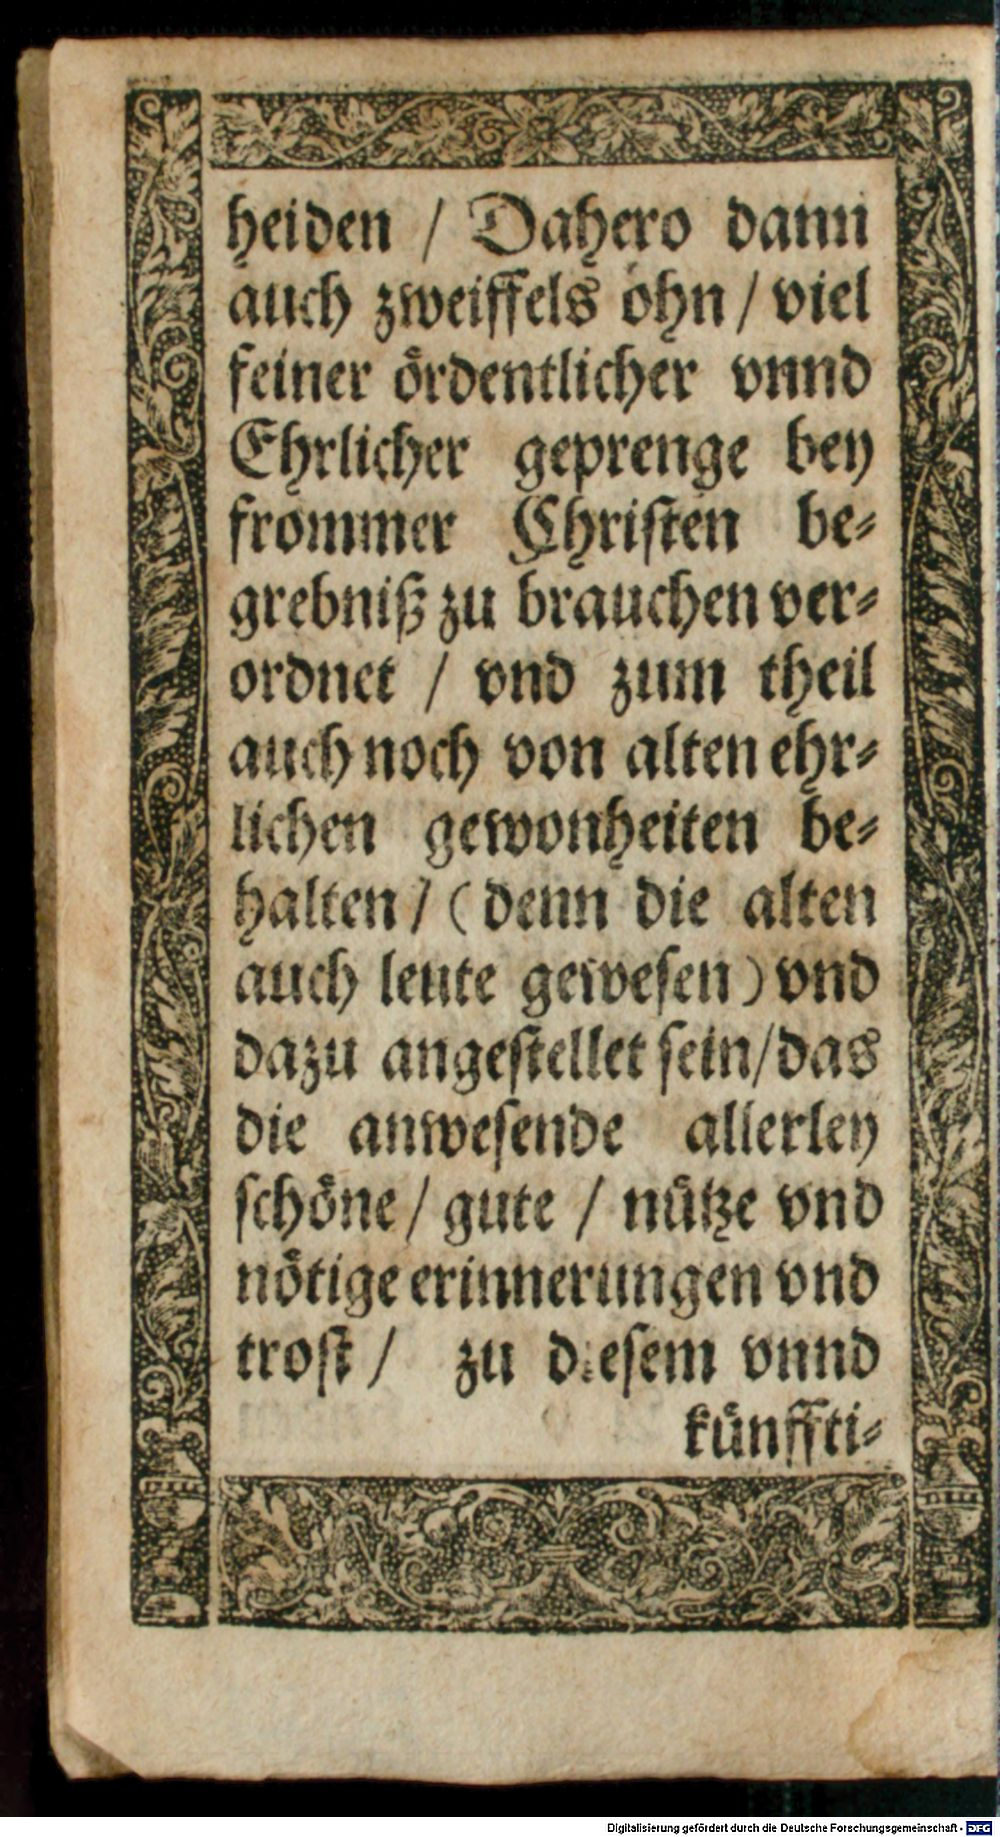 heiden / Dahero dann
auch zweiffels ohn / viel
feiner ördentlicher vnnd
Ehrlicher geprenge bey
frommer Christen be-
grebniß zu brauchen ver-
ordnet / vnd zum theil
auch noch von alten ehr-
lichen gewonheiten be-
halten / (denn die alten
auch leute gewesen) vnd
dazu angestellet sein / das
die anwesende allerley
schöne / gute / nütze vnd
nötige erinnerungen vnd
trost / zu diesem vnnd
künffti-
Digitalisierung gefördert durch die Deutsche Forschungsgemeinschaft - DFG